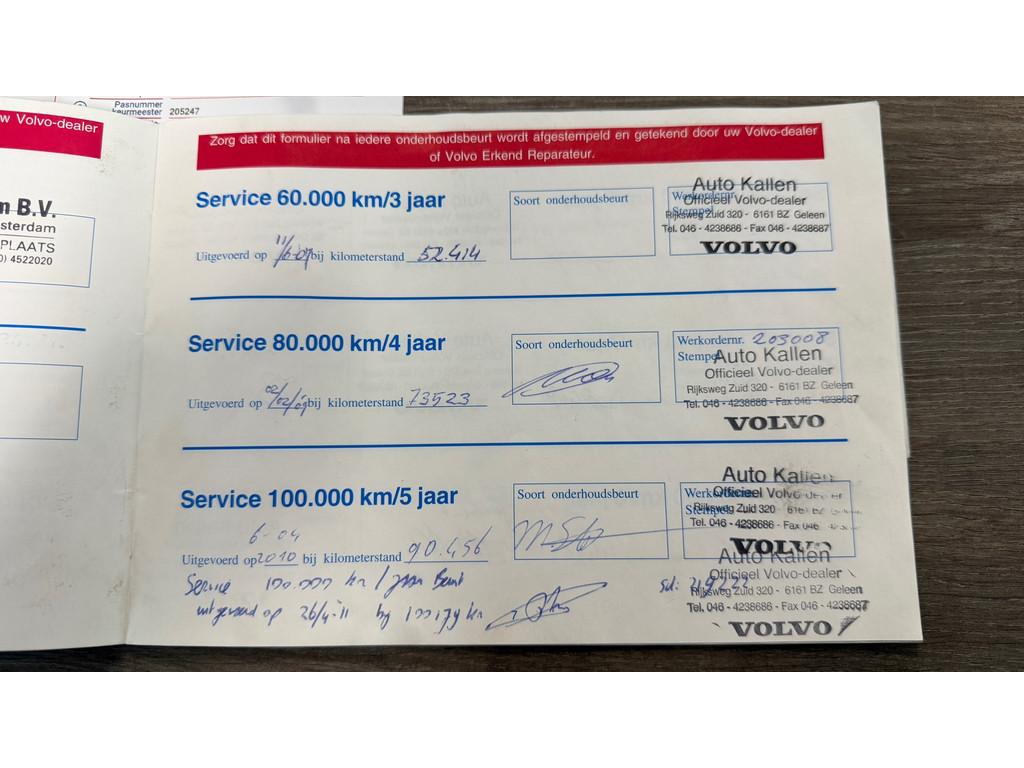 Pasnummer
keurmeester 205247
w Volvo-dealer
n B.V.
sterdam
PLAATS
0) 4522020
Zorg dat dit formulier na iedere onderhoudsbeurt wordt afgestempeld en getekend door uw Volvo-dealer
of Volvo Erkend Reparateur.
Service 60.000 km/3 jaar
Soort onderhoudsbeurt
Werkordernr.
Stempel
Auto Kallen
Officieel Volvo-dealer
Rijksweg Zuid 320 - 6161 BZ Geleen
Tel. 046 - 4238686 - Fax 046 - 4238687
VOLVO
Uitgevoerd op bij kilometerstand 52.414
Service 80.000 km/4 jaar
Soort onderhoudsbeurt
Werkordernr. 203008
Stempel
Auto Kallen
Officieel Volvo-dealer
Rijksweg Zuid 320 - 6161 BZ Geleen
Tel. 046 - 4238686 - Fax 046 - 4238687
VOLVO
Uitgevoerd op 02/02/09 bij kilometerstand 73523
Service 100.000 km/5 jaar
Soort onderhoudsbeurt
Werkordernr.
Stempel
Auto Kallen
Officieel Volvo-dealer
Rijksweg Zuid 320 - 6161 BZ Geleen
Tel. 046 - 4238686 - Fax 046
VOLVO
6-04
Uitgevoerd op 2010 bij kilometerstand 90.456
Service 100.000 km /
uitgevoerd op 26/4-11 by km
Auto Kallen
Officieel Volvo-dealer
Rijksweg Zuid 320 - 6161 BZ Geleen
Tel. 046 - 4238686 - Fax 046 - 4238687
VOLVO